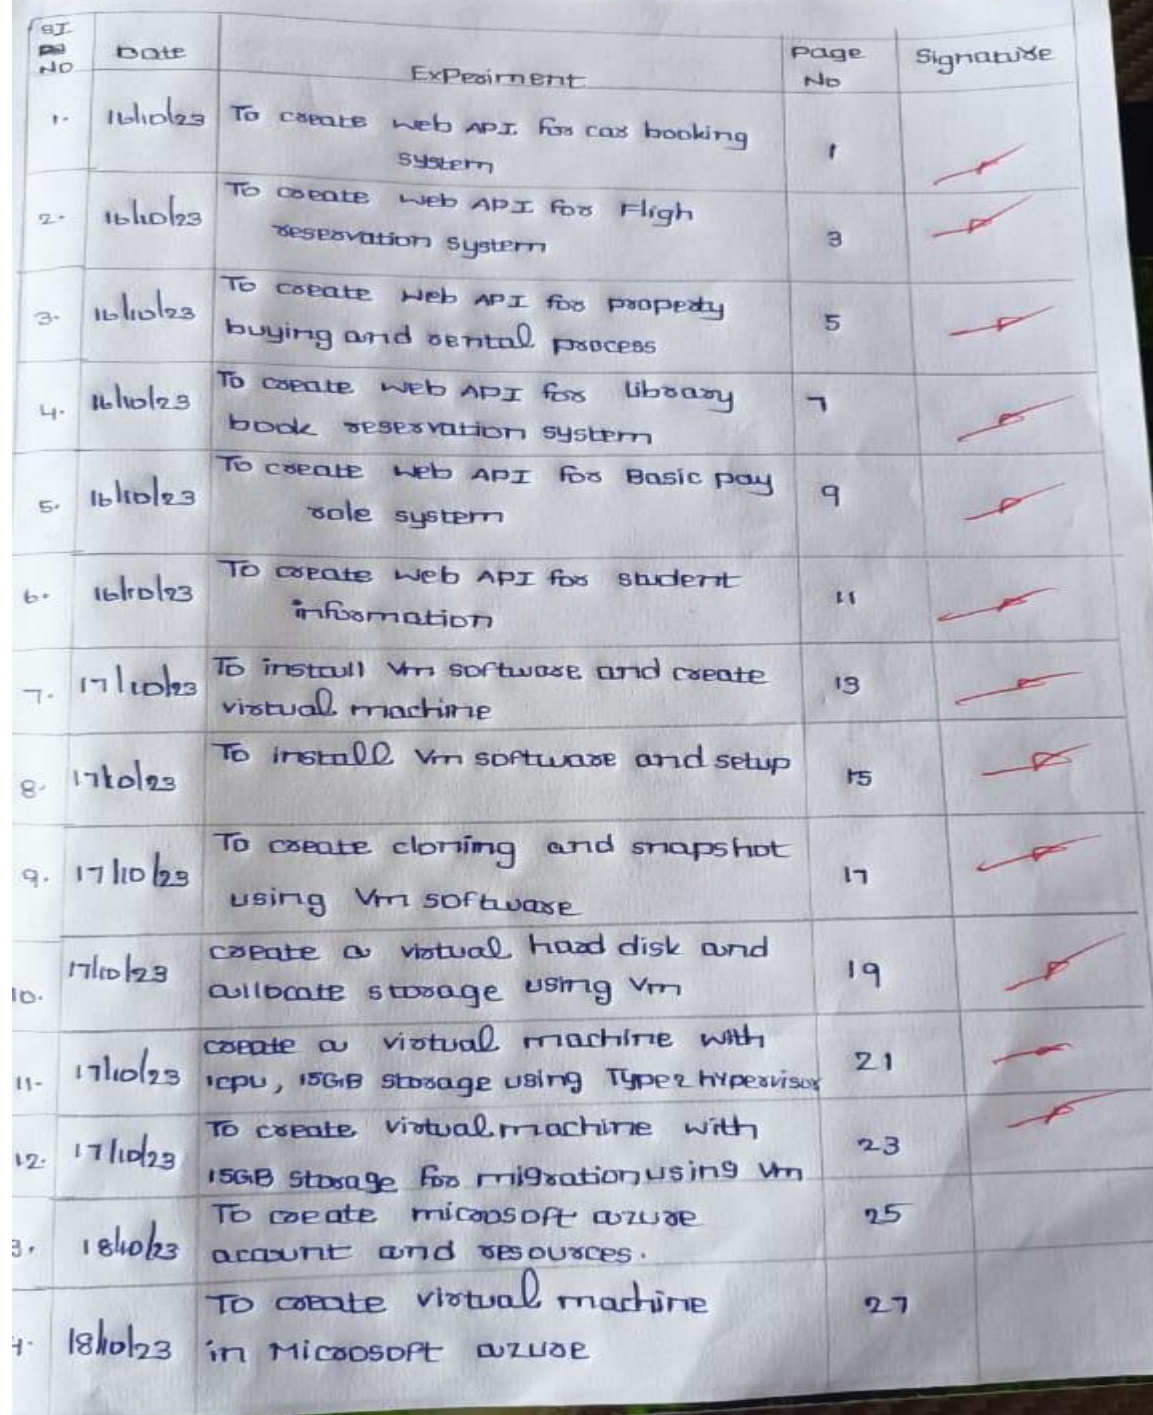 SI
NO
Date
Expeirment
Page
No
Signature
1. 16/10/23 To create web API for car booking
system 1
2. 16/10/23 To create web API for Fligh
reservation system 3
3. 16/10/23 To create Web API for property
buying and rental process 5
4. 16/10/23 To create web API for library 7
book reservation system
5. 16/10/23 To create web API for Basic pay 9
role system
6. 16/10/23 To create web API for student
information 11
7. 17/10/23 To install Vm software and create 13
virtual machine
8. 17/10/23 To install Vm software and setup 15
9. 17/10/23 To create cloning and snapshot 17
using Vm software
10. 17/10/23 create a virtual hard disk and 19
allocate storage using Vm
11. 17/10/23 create a virtual machine with 21
1cpu, 15GB storage using Type2 hypervisor
12. 17/10/23 To create virtual machine with 23
15GB storage for migration using Vm
3. 18/10/23 To create microsoft azure 25
account and resources.
4. 18/10/23 To create virtual machine 27
in Microsoft azure